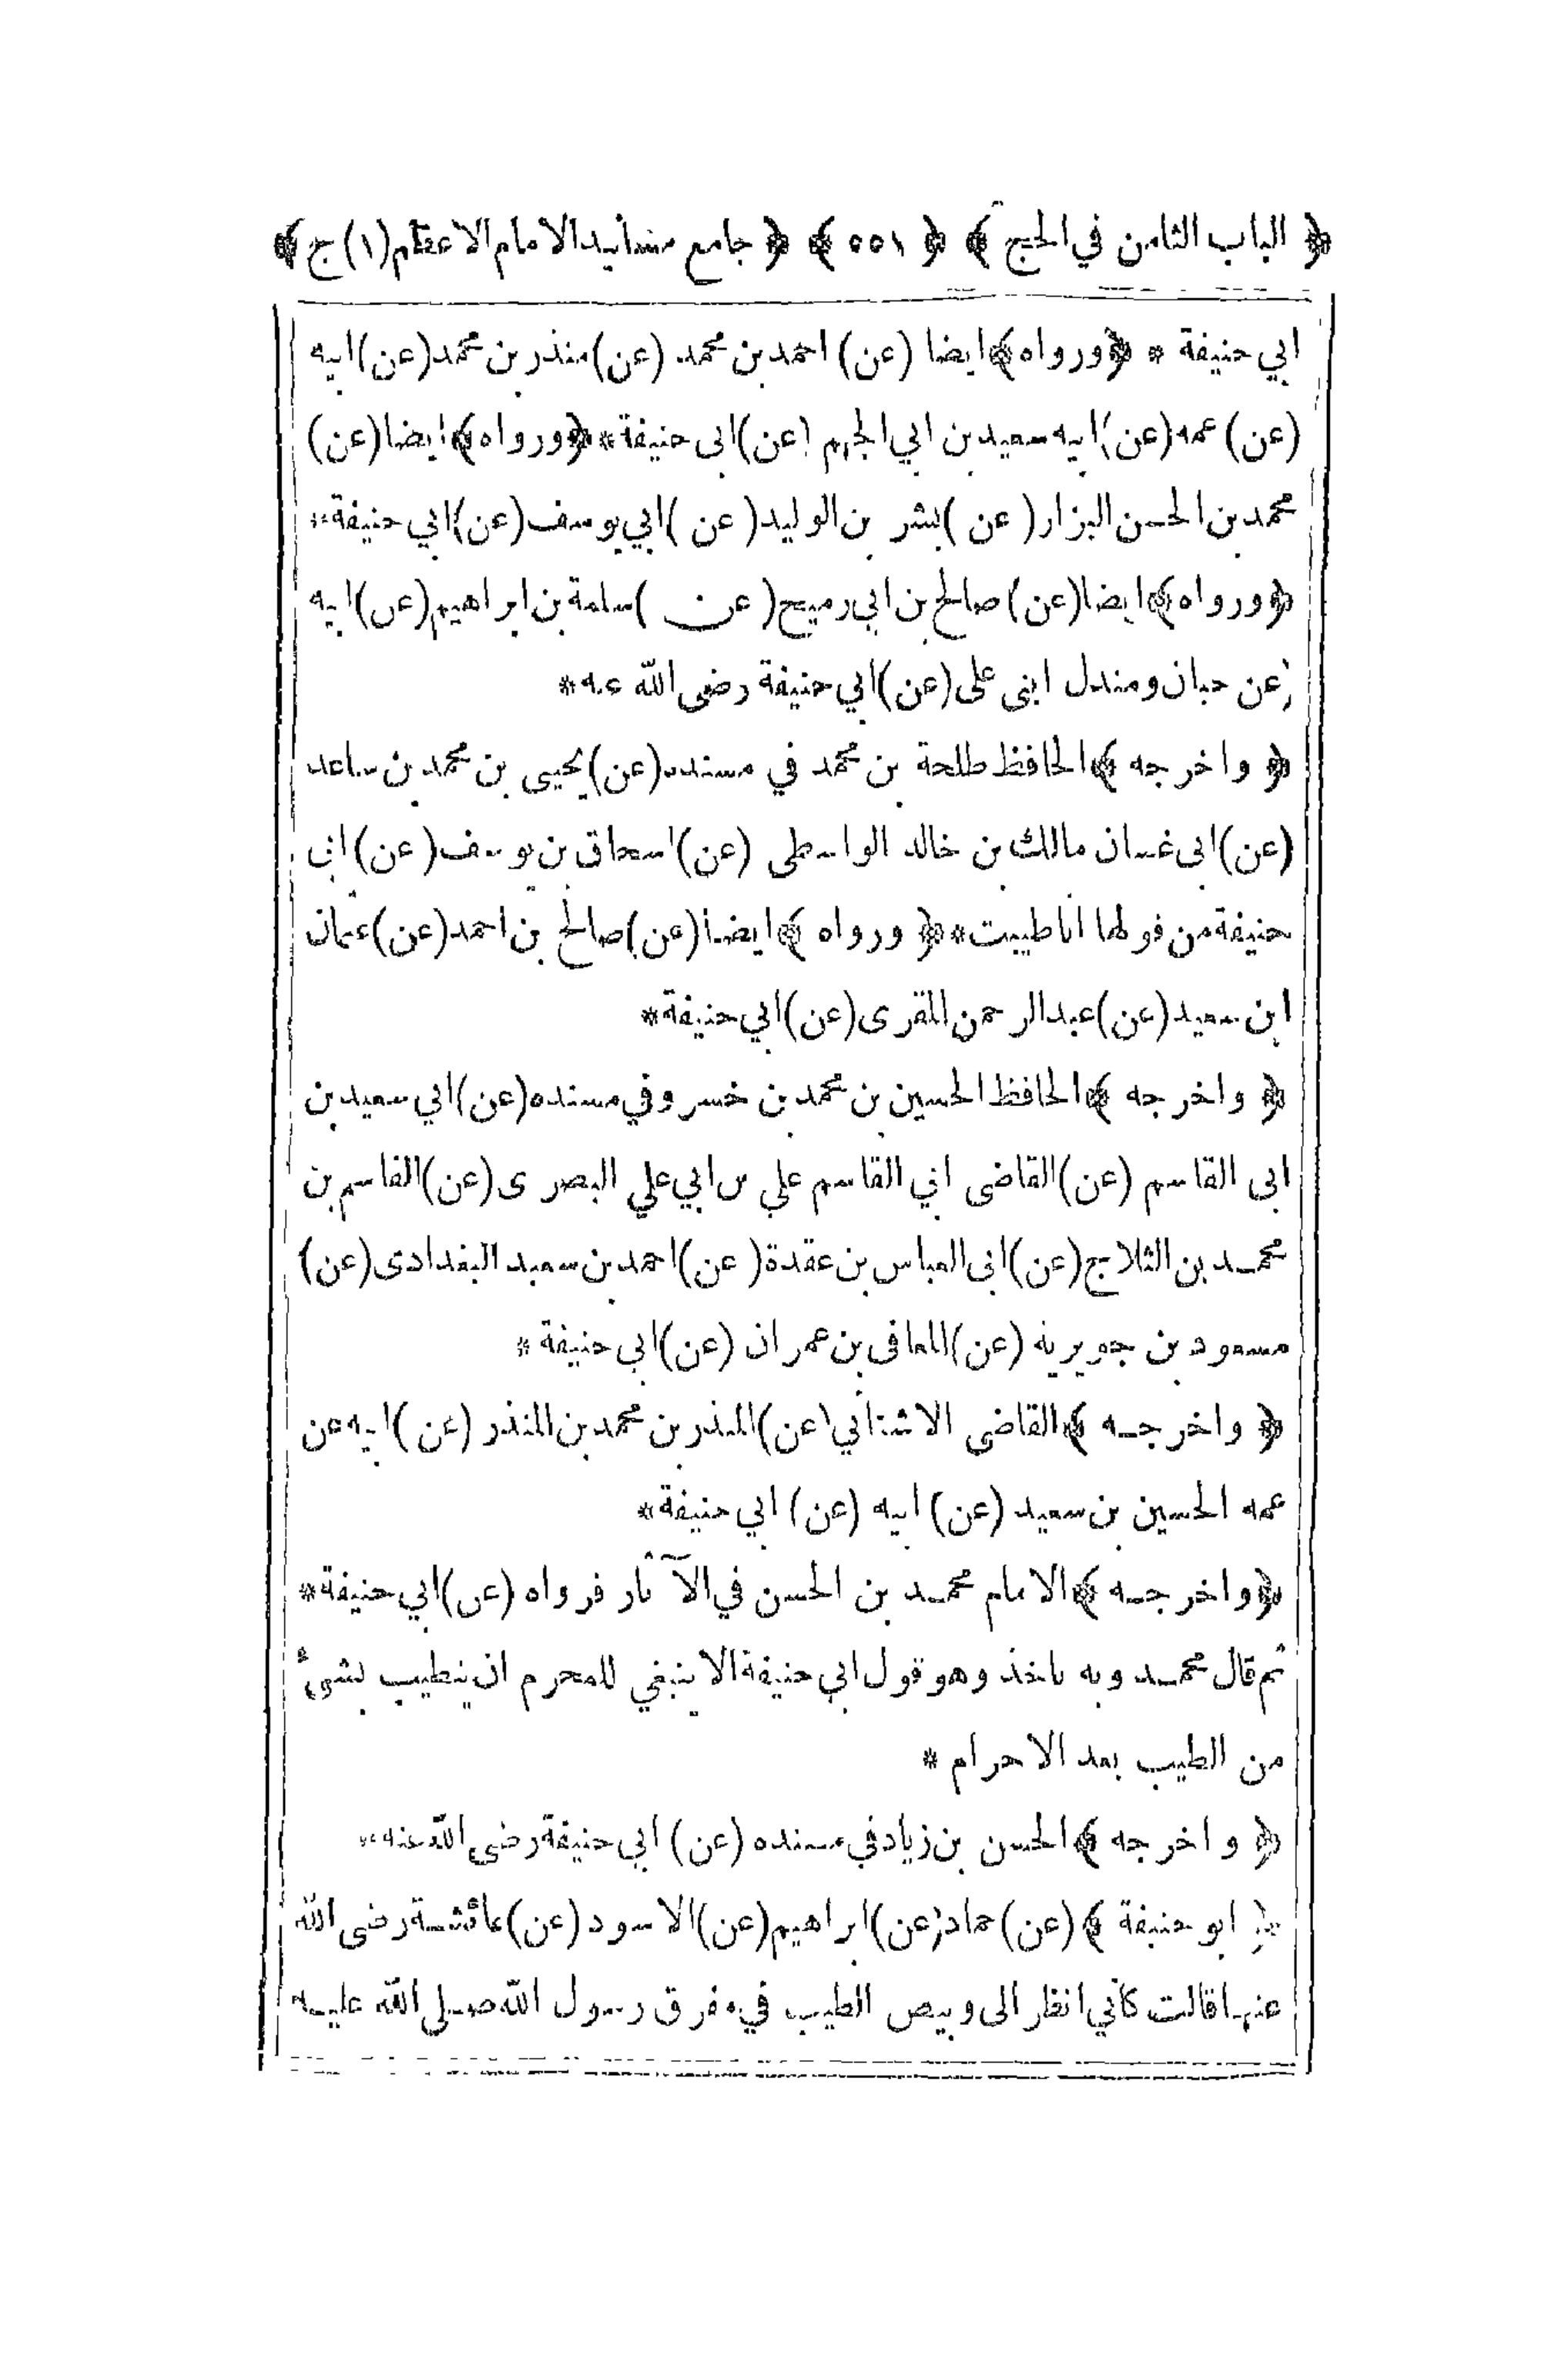 ﴿ الباب الثامن في الحج ﴾ ﴿ ٥٥١ ﴾ ﴿ جامع مسانيد الامام الاعظم (١) ج ﴾
ابي حنيفة * ﴿ورواه﴾ ايضا (عن) احمد بن محمد (عن) منذر بن محمد (عن) ابيه
(عن) عمه (عن) ابيه سعيد بن ابي الجهم (عن) ابى حنيفة * ﴿ورواه﴾ ايضا (عن)
محمد بن الحسن البزار (عن) بشر بن الوليد (عن) ابي يوسف (عن) ابي حنيفة *
﴿ورواه﴾ ايضا (عن) صالح بن ابي رميح (عن) سلمة بن ابراهيم (عن) ابيه
(عن حبان ومندل ابنى على (عن) ابي حنيفة رضى الله عنه *
﴿ واخرجه ﴾ الحافظ طلحة بن محمد في مسنده (عن) يحيى بن محمد بن ساعد
(عن) ابى غسان مالك بن خالد الواسطى (عن) اسحاق بن يوسف (عن) ابى
حنيفة من قولها انا طيبت * ﴿ ورواه ﴾ ايضا (عن) صالح بن احمد (عن) عثمان
ابن سعيد (عن) عبد الرحمن المقرى (عن) ابي حنيفة *
﴿ واخرجه ﴾ الحافظ الحسين بن محمد بن خسرو في مسنده (عن) ابي سعيد بن
ابى القاسم (عن) القاضى ابي القاسم علي بن ابي علي البصرى (عن) القاسم بن
محمد بن الثلاج (عن) ابى العباس بن عقدة (عن) احمد بن سعيد البغدادى (عن)
مسعود بن جويرية (عن) المعافى بن عمران (عن) ابى حنيفة *
﴿ واخرجه ﴾ القاضى الاشناني (عن) المنذر بن محمد بن المنذر (عن) ابيه عن
عمه الحسين بن سعيد (عن) ابيه (عن) ابي حنيفة *
﴿واخرجه ﴾ الامام محمد بن الحسن في الآثار فرواه (عن) ابي حنيفة *
ثم قال محمد وبه ناخذ وهو قول ابي حنيفة الا ينبغي للمحرم ان يتطيب بشئ
من الطيب بعد الاحرام *
﴿ واخرجه ﴾ الحسن بن زياد في مسنده (عن) ابي حنيفة رضى الله عنه *
﴿ ابو حنيفة ﴾ (عن) حماد (عن) ابراهيم (عن) الاسود (عن) عائشة رضى الله
عنها قالت كأني انظر الى وبيص الطيب في مفرق رسول الله صلى الله عليه